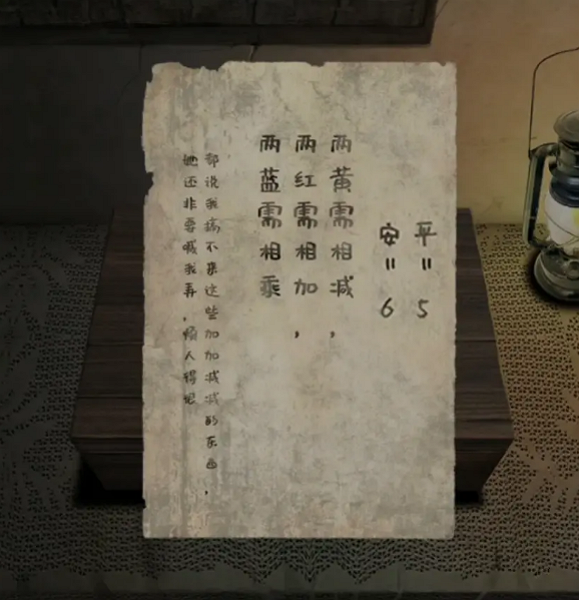 平=5
安=6
两黄需相减，
两红需相加，
两蓝需相乘
都说我搞不来这些加加减减的东西，
她还非要喊我弄，烦人得很